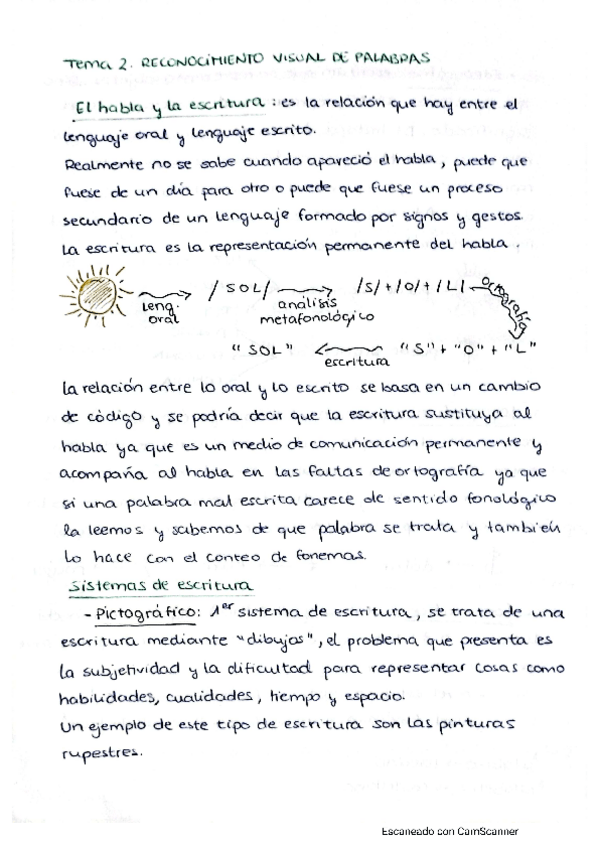 Tema 2. RECONOCIMIENTO VISUAL DE PALABRAS
El habla y la escritura : es la relación que hay entre el
lenguaje oral y lenguaje escrito.
Realmente no se sabe cuando apareció el habla, puede que
fuese de un día para otro o puede que fuese un proceso
secundario de un lenguaje formado por signos y gestos
La escritura es la representación permanente del habla.
leng. oral
/SOL/
análisis metafonológico
/S/+/O/+/L/
ortografía
"SOL"
escritura
"S"+"O"+"L"
La relación entre lo oral y lo escrito se basa en un cambio
de código y se podría decir que la escritura sustituya al
habla ya que es un medio de comunicación permanente y
acompaña al habla en las faltas de ortografía ya que
si una palabra mal escrita carece de sentido fonológico
la leemos y sabemos de que palabra se trata y también
lo hace con el conteo de fonemas.
Sistemas de escritura
- Pictográfico: 1er sistema de escritura, se trata de una
escritura mediante "dibujos", el problema que presenta es
la subjetividad y la dificultad para representar cosas como
habilidades, cualidades, tiempo y espacio.
Un ejemplo de este tipo de escritura son las pinturas
rupestres.
Escaneado con CamScanner